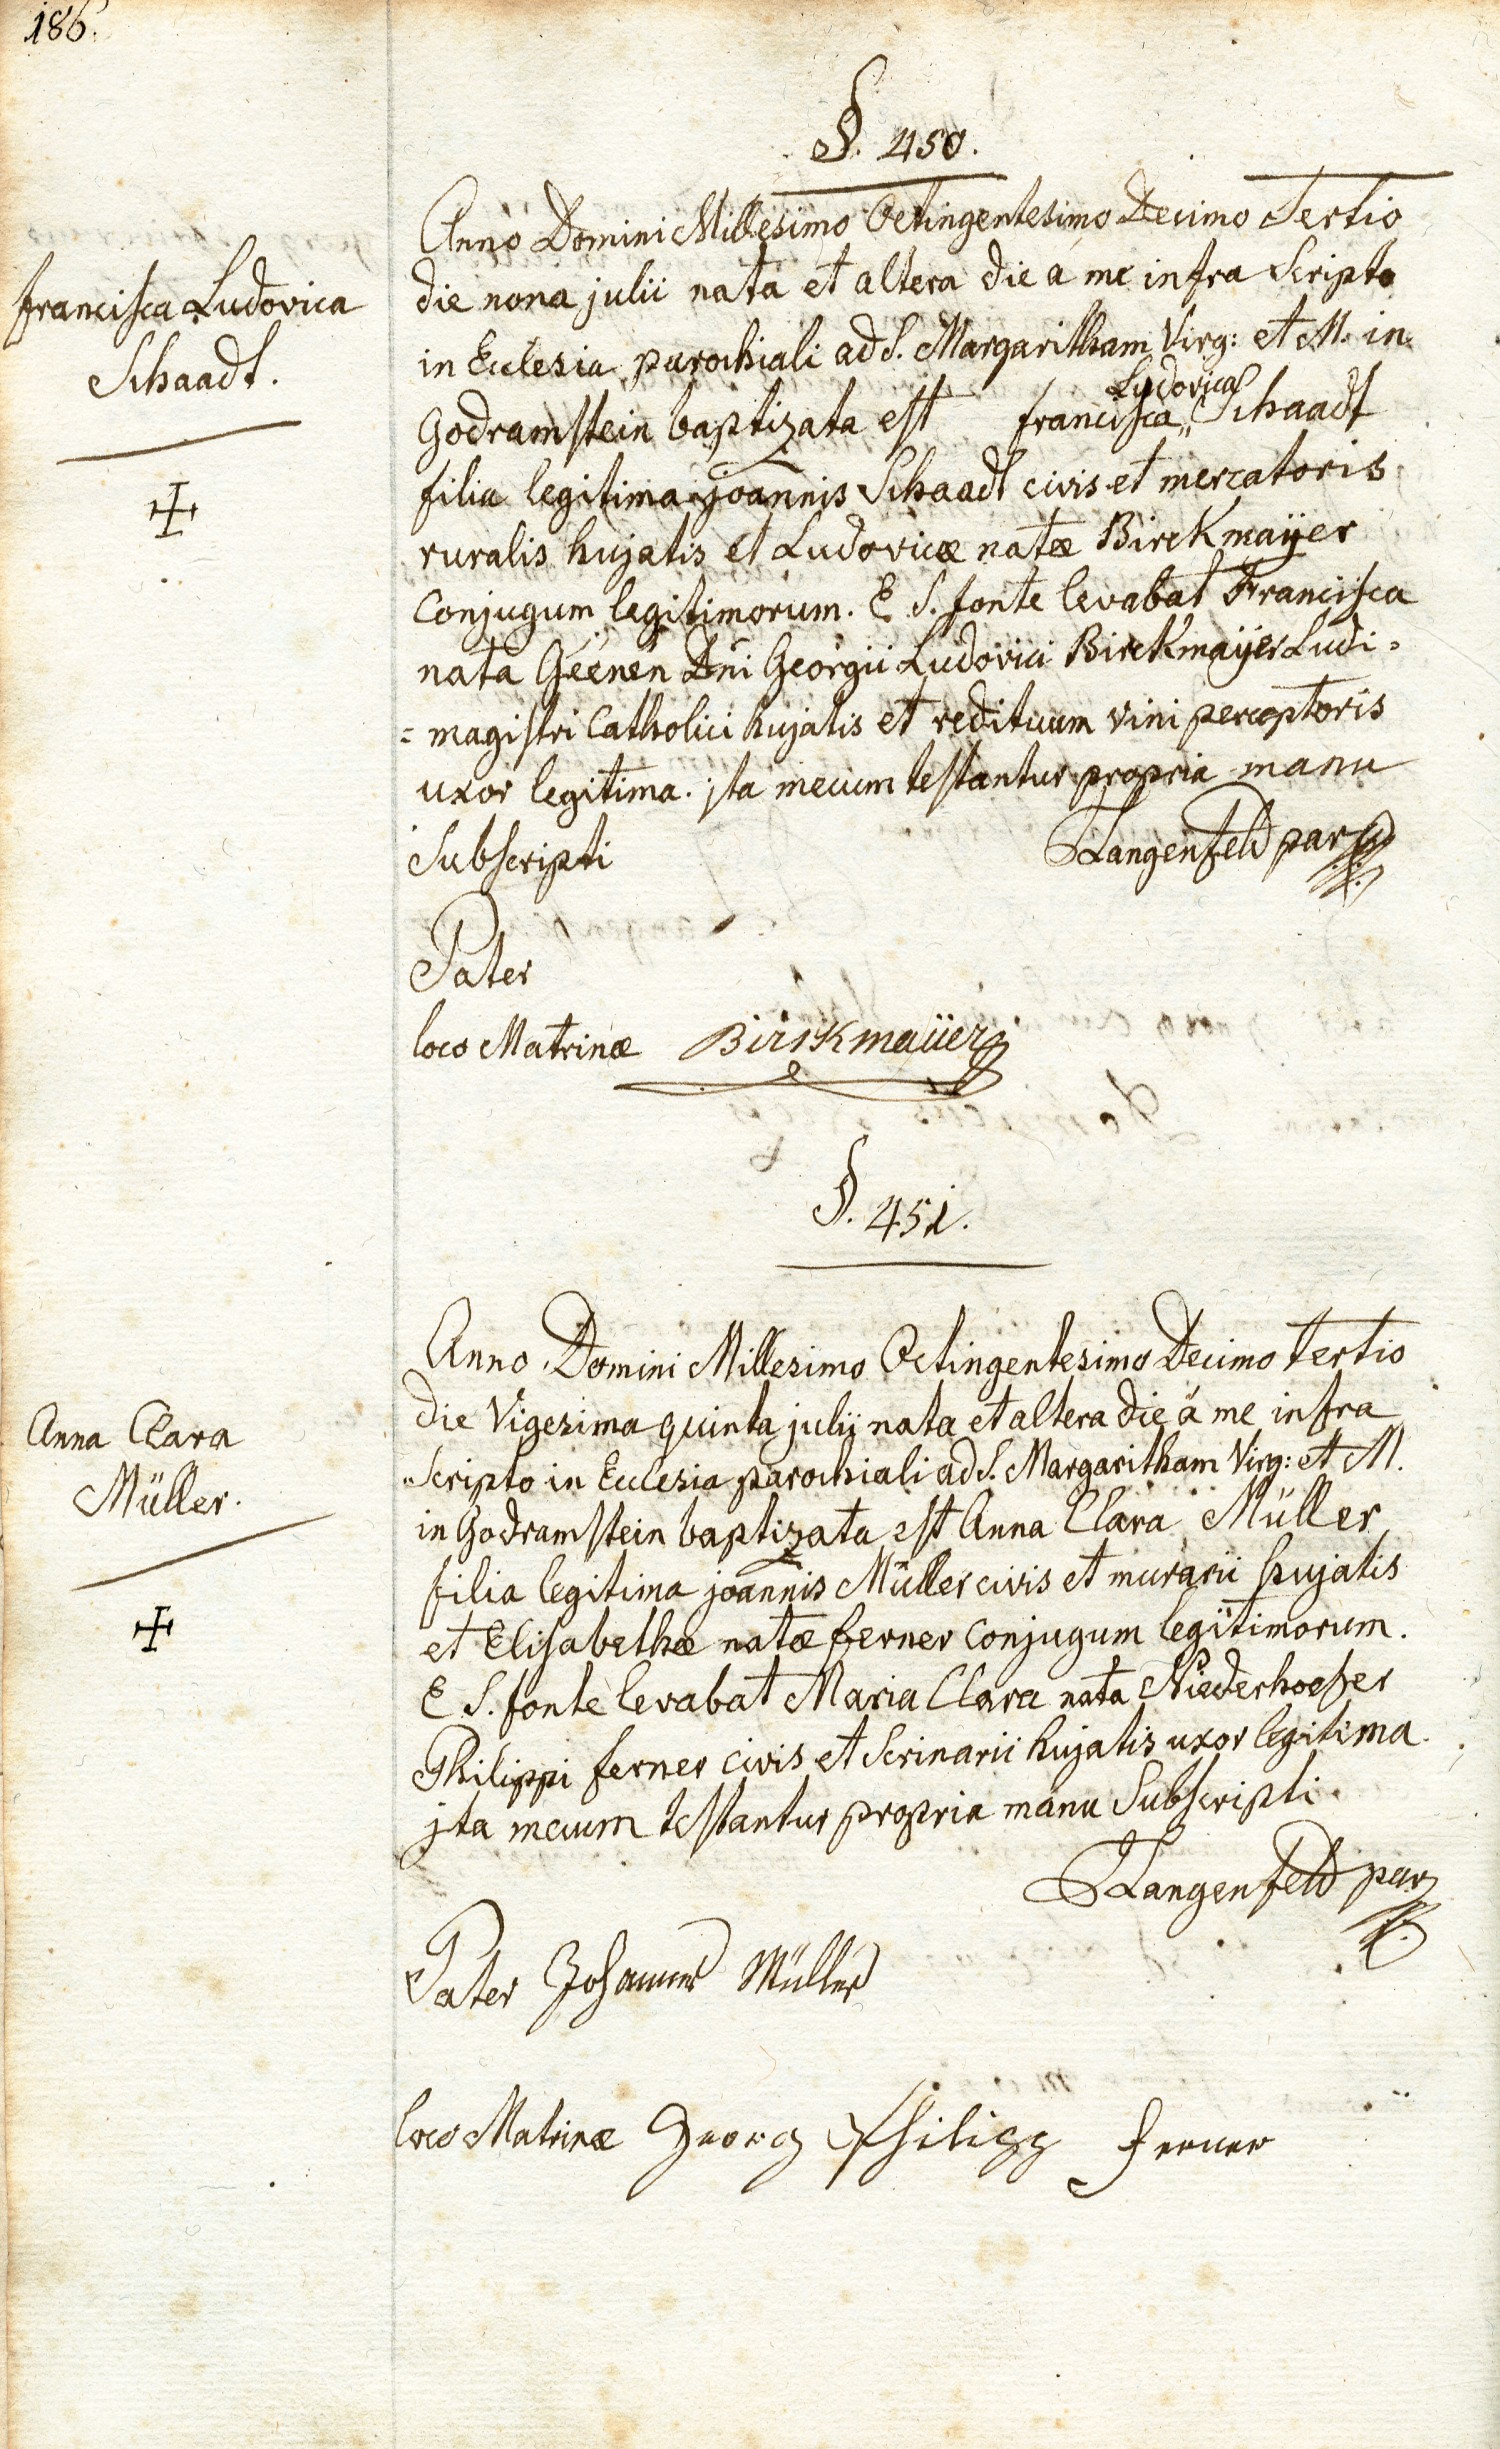 186.
§. 450.
Francisca Ludovica
Schaadt.
Anno Domini Millesimo Octingentesimo Decimo Tertio
die nona julii nata et altera die a me infra Scripto
in Ecclesia parochiali ad S. Margaritham Virg: et M. in
Ludovica
Godramstein baptizata est francisca „ Schaadt
filia legitima joannis Schaadt civis et mercatoris
ruralis hujatis et Ludovicæ natæ Birckmaÿer
Conjugum legitimorum. E S. fonte levabat Francisca
nata Geenen Dni Georgii Ludovici Birckmaÿer Ludi=
=magistri Catholici hujatis et redituum vini perceptoris
uxor legitima. jta mecum testantur propria manu
Subscripti
Langenfeld par
Pater
loco Matrinæ Birckmaÿer
§. 451.
Anna Clara
Müller.
Anno Domini Millesimo Octingentesimo Decimo tertio
die Vigesima quinta julii nata et altera die a me infra
Scripto in Ecclesia parochiali ad S. Margaritham Virg: et M.
in Godramstein baptizata est Anna Clara Müller
filia legitima joannis Müller civis et murarii hujatis
et Elisabethæ natæ ferner Conjugum legitimorum.
E S. fonte levabat Maria Clara nata Niederhoefer
Philippi ferner civis et Scrinarii hujatis uxor legitima.
jta mecum testantur propria manu Subscripti.
Langenfeld par
Pater Johannes Müller
loco Matrinæ Georg Philipp ferner